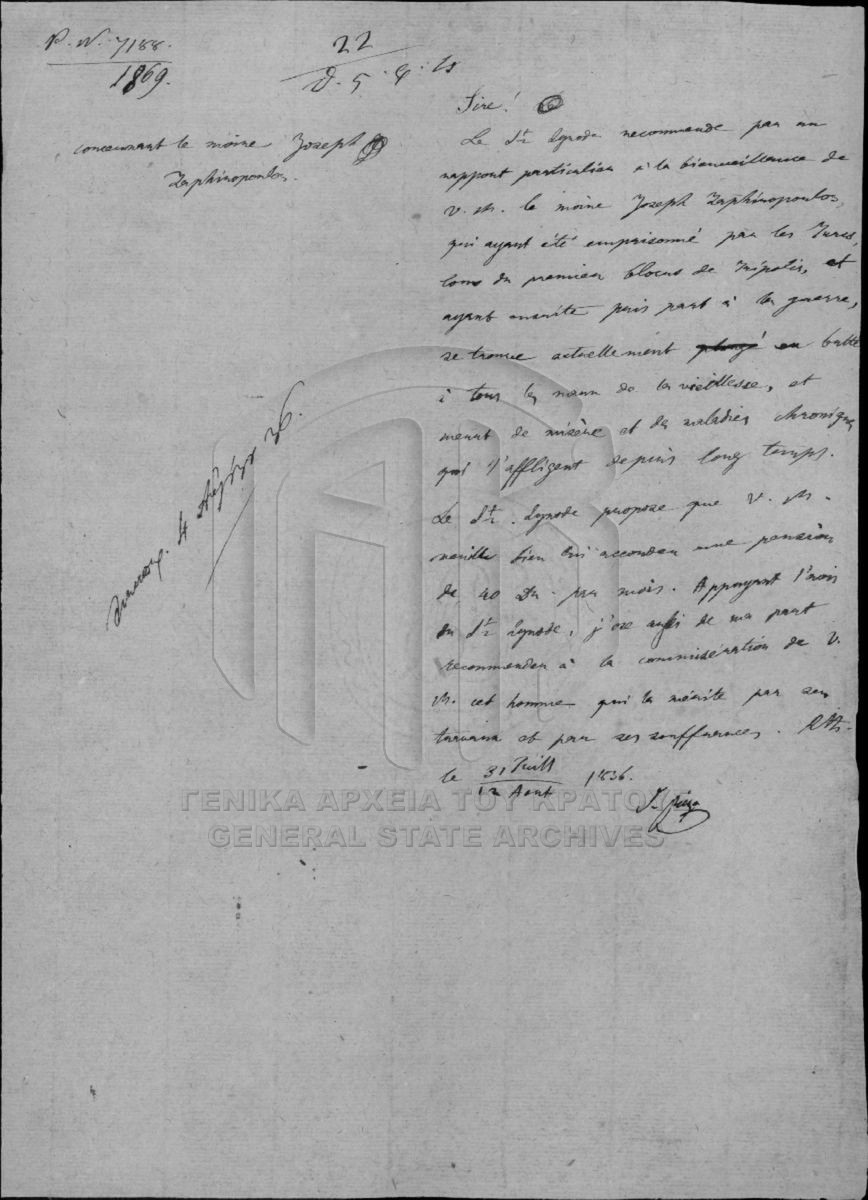 P. N. 7188.
1869.
22
D. 5. 8.
concernant le moine Joseph
Zaphiropoulos.
Sire!
Le St. Synode recommande par un
rapport particulier à la bienveillance de
V. M. le moine Joseph Zaphiropoulos,
qui ayant été emprisonné par les Turcs,
lors du premier blocus de Tripolis, et
ayant ensuite pris part à la guerre,
se trouve actuellement plongé en butte
à tous les maux de la vieillesse, et
meurt de misère et des maladies chroniques
qui l'affligent depuis long temps.
Le St. Synode propose que V. M.
veuille bien lui accorder une pension
de 40 Dr. par mois. Appuyant l'avis
du St. Synode, j'ose aussi de ma part
recommander à la commisération de V.
M. cet homme qui la mérite par ses
travaux et par ses souffrances. Ath.
le 31 Juill
12 Aout 1836.
4
ΓΕΝΙΚΑ ΑΡΧΕΙΑ ΤΟΥ ΚΡΑΤΟΥΣ
GENERAL STATE ARCHIVES